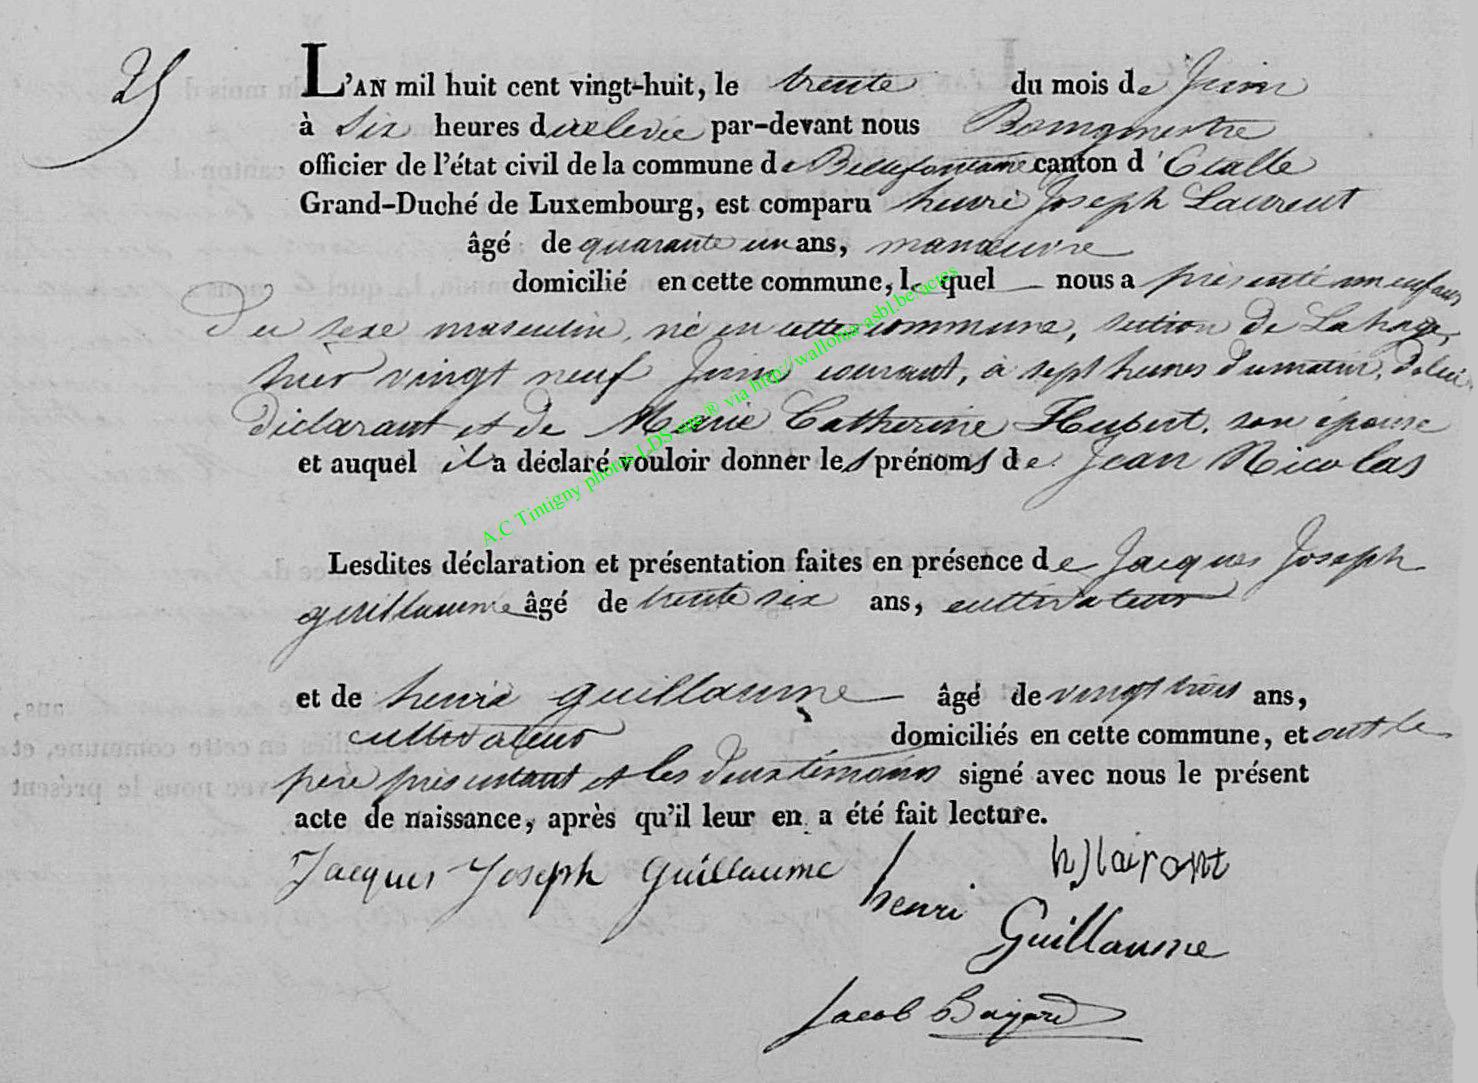 25
L'AN mil huit cent vingt-huit, le trente du mois de Juin
à Six heures de relevée par-devant nous Bourgmestre
officier de l'état civil de la commune de Bellefontaine canton d'Etalle
Grand-Duché de Luxembourg, est comparu henri Joseph Laurent
âgé de quarante un ans, manœuvre
domicilié en cette commune, lequel nous a présenté un enfant
du sexe masculin, né en cette commune, section de Lahage,
hier vingt neuf Juin courant, à sept heures du matin, de lui
déclarant et de Marie Catherine Hubert, son épouse
et auquel il a déclaré vouloir donner les prénoms de Jean Nicolas
Lesdites déclaration et présentation faites en présence de Jacques Joseph
guillaume âgé de trente six ans, cultivateur
et de henri guillaume âgé de vingt trois ans,
cultivateur domiciliés en cette commune, et ont le
père présentant et les deux témoins signé avec nous le présent
acte de naissance, après qu'il leur en a été fait lecture.
Jacques Joseph Guillaume
henri Guillaume
Jacob Bayard
A.C Tintigny photos LDS site® via http://wallonia-asbl.be/actes